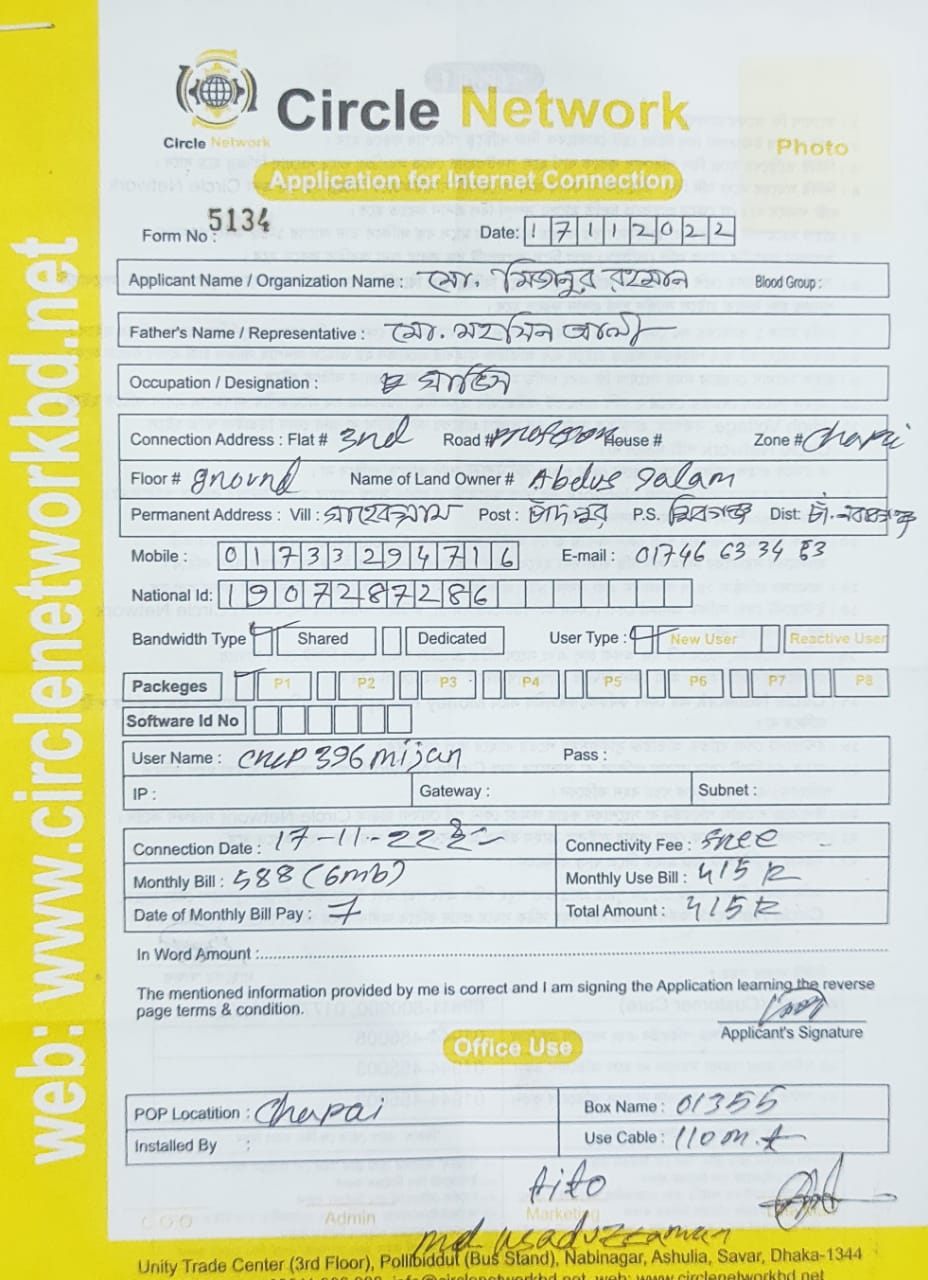 Circle Network
Circle Network
Photo
Application for Internet Connection
Form No : 5134
Date: 17112022
Applicant Name / Organization Name : মো. মিজানুর রহমান Blood Group :
Father's Name / Representative : মো. মহসিন আলী
Occupation / Designation :
Connection Address : Flat # 3nd Road # House # Zone # Chapai
Floor # ground Name of Land Owner # Abdus Salam
Permanent Address : Vill : সাহেবগ্রাম Post : চাঁদপুর P.S. শিবগঞ্জ Dist: চাঁ. নবাবগঞ্জ
Mobile : 01733294716 E-mail : 01746 63 34 83
National Id: 1907287286
Bandwidth Type Shared Dedicated User Type : New User Reactive User
Packeges P1 P2 P3 P4 P5 P6 P7 P8
Software Id No
User Name : chcp396mijan Pass :
IP : Gateway : Subnet :
Connection Date : 17-11-22 Connectivity Fee : free
Monthly Bill : 588 (6mb) Monthly Use Bill : 415
Date of Monthly Bill Pay : 7 Total Amount : 415
In Word Amount :
The mentioned information provided by me is correct and I am signing the Application learning the reverse
page terms & condition.
Applicant's Signature
Office Use
POP Locatition : Chapai Box Name : 01355
Installed By : Use Cable : 110 m.t
Aito
COO Admin Marketing
md Asaduzzaman
Unity Trade Center (3rd Floor), Pollibiddut (Bus Stand), Nabinagar, Ashulia, Savar, Dhaka-1344
info@circlenetworkbd.net, web: www.circlenetworkbd.net
web: www.circlenetworkbd.net